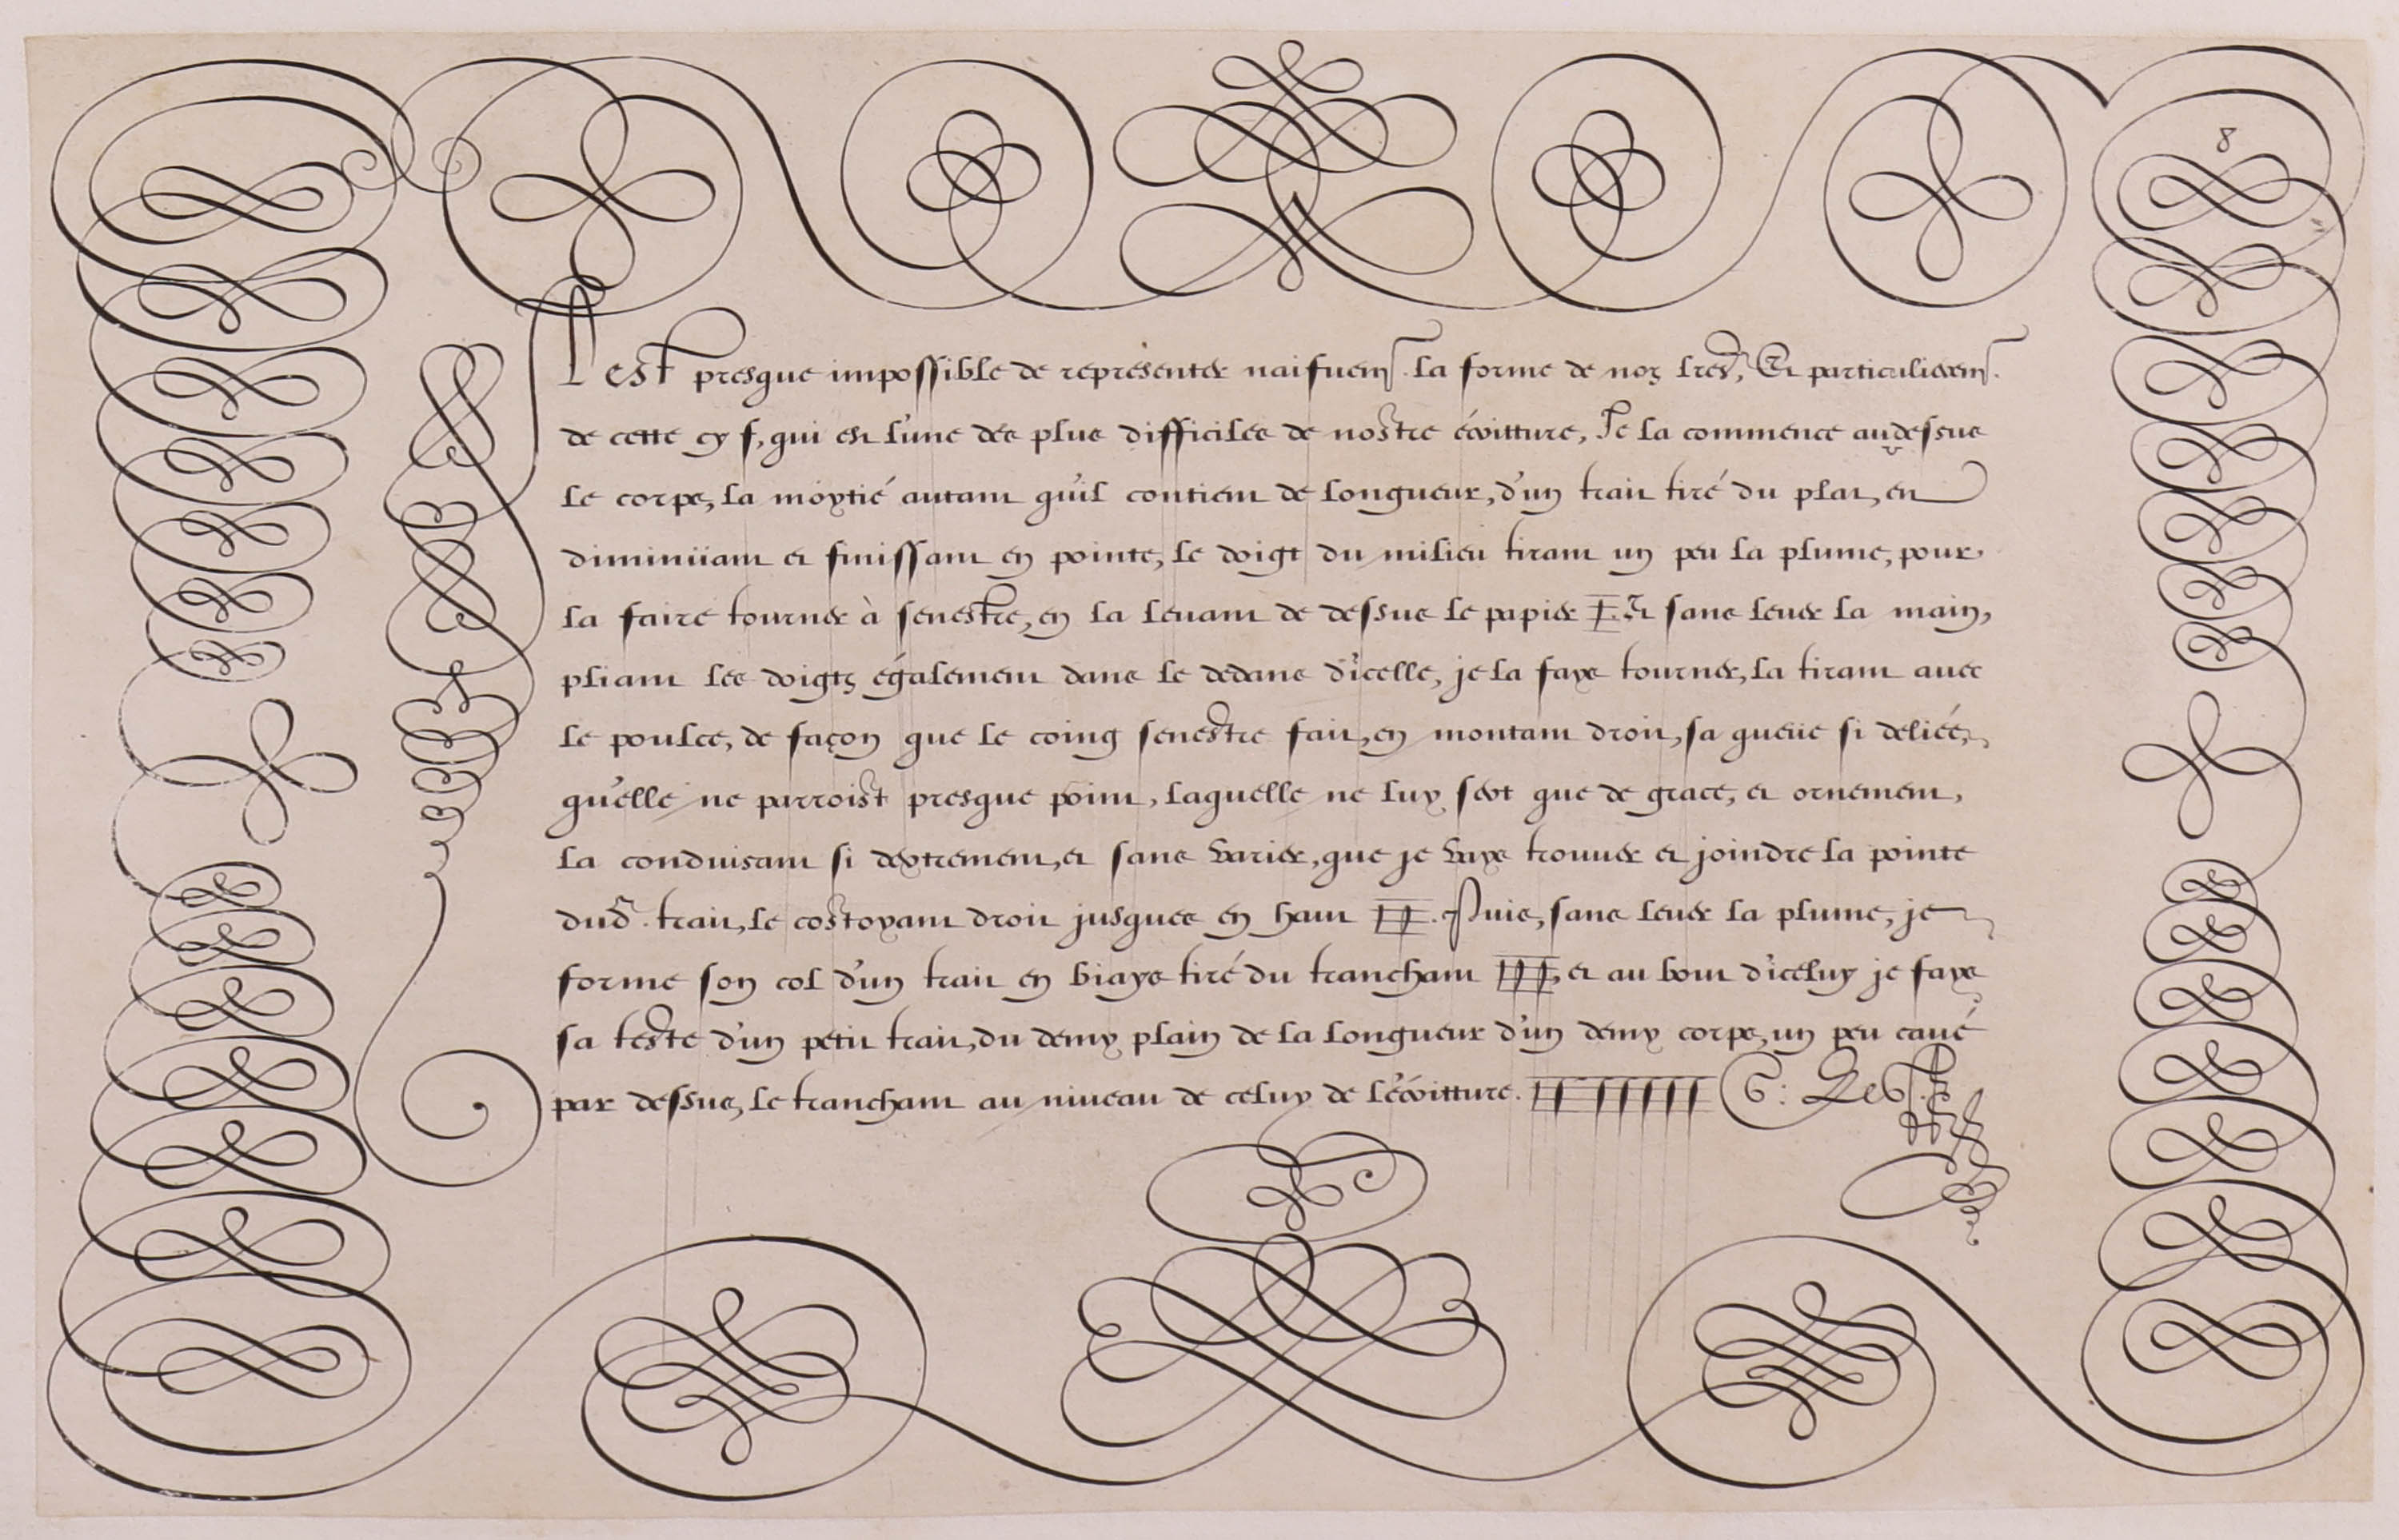 8
Il est presque impossible de representer naifuem.̃ la forme de noz lrẽs, Et particulierem.̃
de cette cy ſ, qui est l'une des plus difficiles de nostre écritture, Je la commence audessus
le corps, la moytié autant qu'il contient de longueur, d'un trait tiré du plat, en
diminüant et finissant en pointe, le doigt du milieu tirant un peu la plume, pour
la faire tourner à senestre, en la levant de dessus le papier I. Et sans lever la main,
pliant les doigtz également dans le dedans d'icelle, je la fays tourner, la tirant avec
le poulce, de façon que le coing senestre fait, en montant droit, sa queüe si deliée,
qu'elle ne parroist presque point, laquelle ne luy sert que de grace, et ornement,
la conduisant si dextrement, et sans varier, que je vays trouver et joindre la pointe
dud̃. trait, le costoyant droit jusques en haut II. Puis, sans lever la plume, je
forme son col d'un trait en biays tiré du tranchant III, et au bout d'iceluy je fays
sa teste d'un petit trait, du demy plain de la longueur d'un demy corps, un peu cavé
par dessus, le tranchant au niveau de celuy de l'écritture.